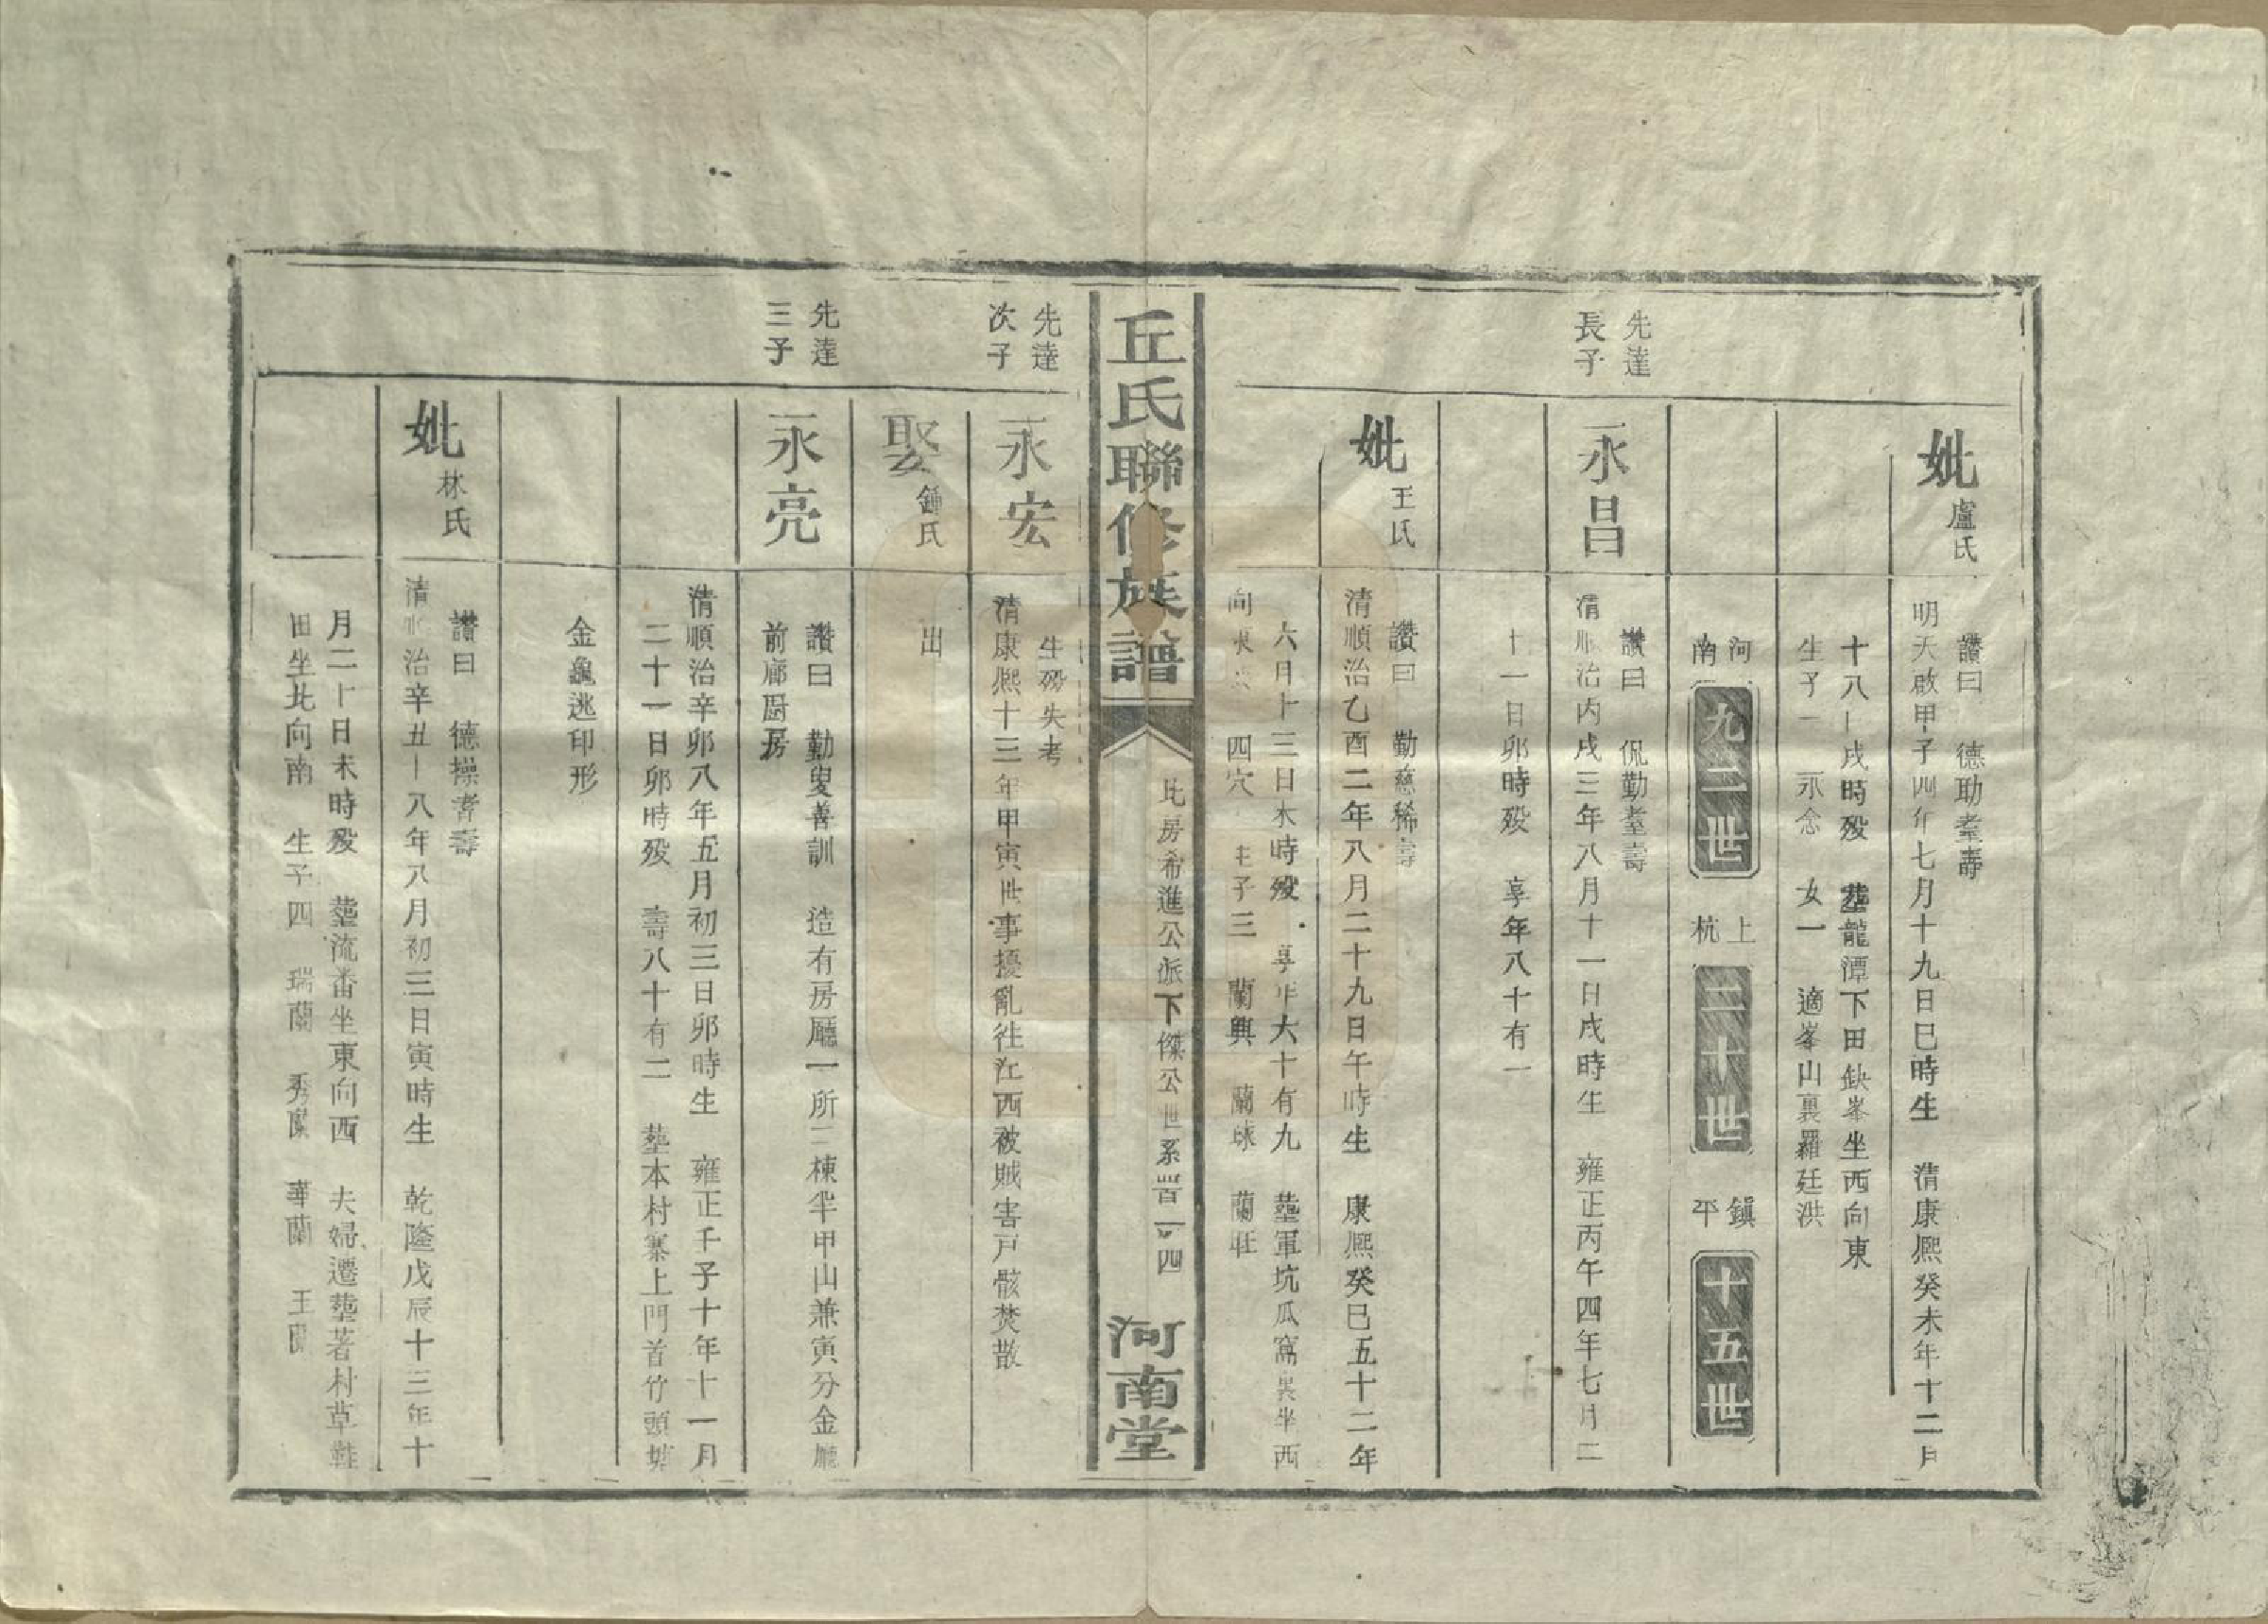 妣 盧氏
讚曰 德助耋壽
明天啟甲子四年七月十九日巳時生 清康熙癸未年十二月
十八日戌時殁 塟龍潭下田缺峯坐西向東
生子一 永念 女一 適峯山裏羅廷洪
河南 九二世 上杭 三十世 鎮平 十五世
先達長子
永昌
讚曰 侃勤耋壽
清順治丙戌三年八月十一日戌時生 雍正丙午四年七月二
十一日卯時殁 享年八十有一
妣 王氏
讚曰 勤慈稀壽
清順治乙酉二年八月二十九日午時生 康熙癸巳五十二年
六月十三日未時殁 享年六十有九 塟軍坑瓜窩 坐西
向東 四穴 生子三 蘭興 蘭球 蘭旺
丘氏聯修族譜
比房希進公派下傑公世系 四
河南堂
先達次子
永宏
生殁失考
清康熙十三年甲寅世事擾亂往江西被賊害尸骸焚散
娶 鍾氏
出
先達三子
永亮
讚曰 勤叟善訓 造有房廳一所二棟坐甲山兼寅分金廳
前廊厨房
清順治辛卯八年五月初三日卯時生 雍正壬子十年十一月
二十一日卯時殁 壽八十有二 塟本村寨上門首竹頭
金龜逃印形
妣 林氏
讚曰 德操耆壽
清順治辛丑十八年八月初三日寅時生 乾隆戊辰十三年十
月二十日未時殁 塟流番坐東向西 夫婦遷塟著村草鞋
田坐北向南 生子四 瑞蘭 秀蘭 華蘭 玉蘭